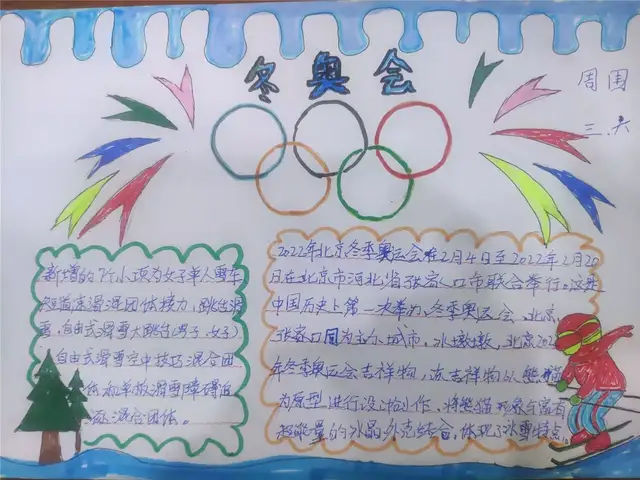 冬奥会
周围
三.六
新增的7个小项为女子单人雪车
短道速滑混团体接力,跳台滑
雪,自由式滑雪大跳台(男子,女子)
自由式滑雪空中技巧混合团
体和单板滑雪障碍追
逐混合团体。
2022年北京冬季奥运会在2月4日至2022年2月20
日在北京市河北省张家口市联合举行。这是
中国历史上第一次举办冬季奥运会,北京
张家口为主办城市,冰墩墩,北京202
年冬季奥运会吉祥物,该吉祥物以熊
为原型进行设计创作,将熊猫形象与富有
超能量的冰晶外壳结合,体现了冰雪特点。